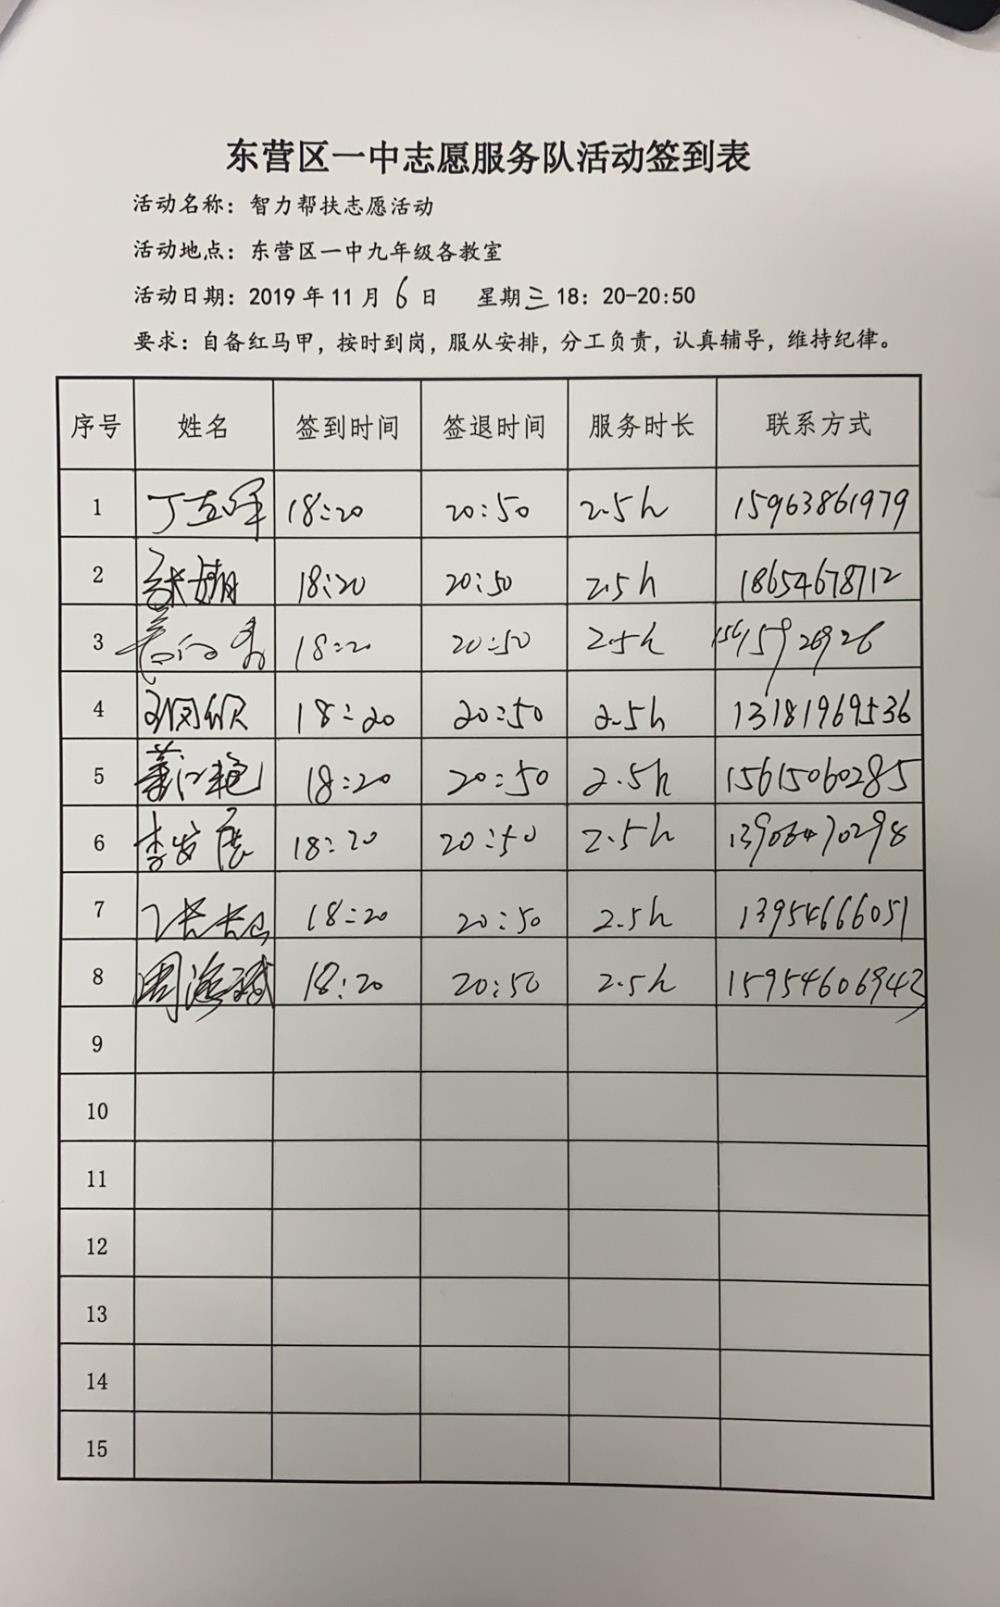 东营区一中志愿服务队活动签到表
活动名称：智力帮扶志愿活动
活动地点：东营区一中九年级各教室
活动日期：2019年11月6日 星期三18：20-20:50
要求：自备红马甲，按时到岗，服从安排，分工负责，认真辅导，维持纪律。
序号 姓名 签到时间 签退时间 服务时长 联系方式
1 丁立 18:20 20:50 2.5h 15963861979
2 张 18:20 20:50 2.5h 18654678712
3 18:20 20:50 2.5h
4 18:20 20:50 2.5h 13181969536
5 董江艳 18:20 20:50 2.5h 15615060285
6 李发展 18:20 20:50 2.5h 13906470298
7 张 18:20 20:50 2.5h 13954666051
8 周海斌 18:20 20:50 2.5h 15954606943
9
10
11
12
13
14
15